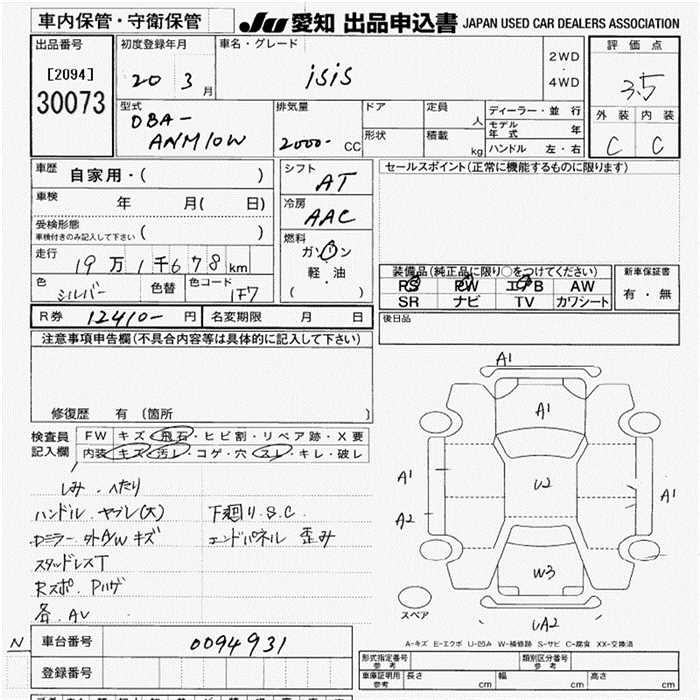 車内保管・守衛保管 JU 愛知 出品申込書 JAPAN USED CAR DEALERS ASSOCIATION
出品番号 初度登録年月 車名・グレード 2WD・4WD 評価点
[2094] 20 3月 isis 3.5
30073 外装 内装
C C
型式 排気量 ドア 定員 人 ディーラー・並行
DBA- モデル年式 年
ANM10W 2000- CC 形状 積載 kg ハンドル 左・右
車歴 自家用・( ) シフト AT セールスポイント(正常に機能するものに限ります)
車検 年 月( 日) 冷房 AAC
受検形態
車検付きのみ記入して下さい ( ) 燃料
走行 19万1千678km ガソリン
軽・油
( )
装備品(純正品に限り○をつけてください) 新車保証書
PS PW エアB AW 有・無
SR ナビ TV カワシート
色 シルバー 色替 色コード 1F7
後日品
R券 12410-円 名変期限 月 日
注意事項申告欄(不具合内容等は具体的に記入して下さい)
修復歴 有(箇所 )
検査員 FW キズ・飛石・ヒビ割・リペア跡・X要
記入欄 内装 キズ・汚レ・コゲ・穴・スレ・キレ・破レ
しみ・へたり
ハンドル ヤブレ(大) 下廻り.S.C
Dミラー 外AW キズ エンドパネル 歪み
スタッドレスT
Rスポ、Pハゲ
各.AU
A1
A1
A1
U2
A1
A2
W3
スペア
UA2
A-キズ E-エクボ U-凹み W-補修跡 S-サビ C-腐食 XX-交換済
N 車台番号 0094931
形式指定番号 参考 類別区分番号 参考
登録番号 車庫証明用 参考 長さ cm 幅 cm 高さ cm